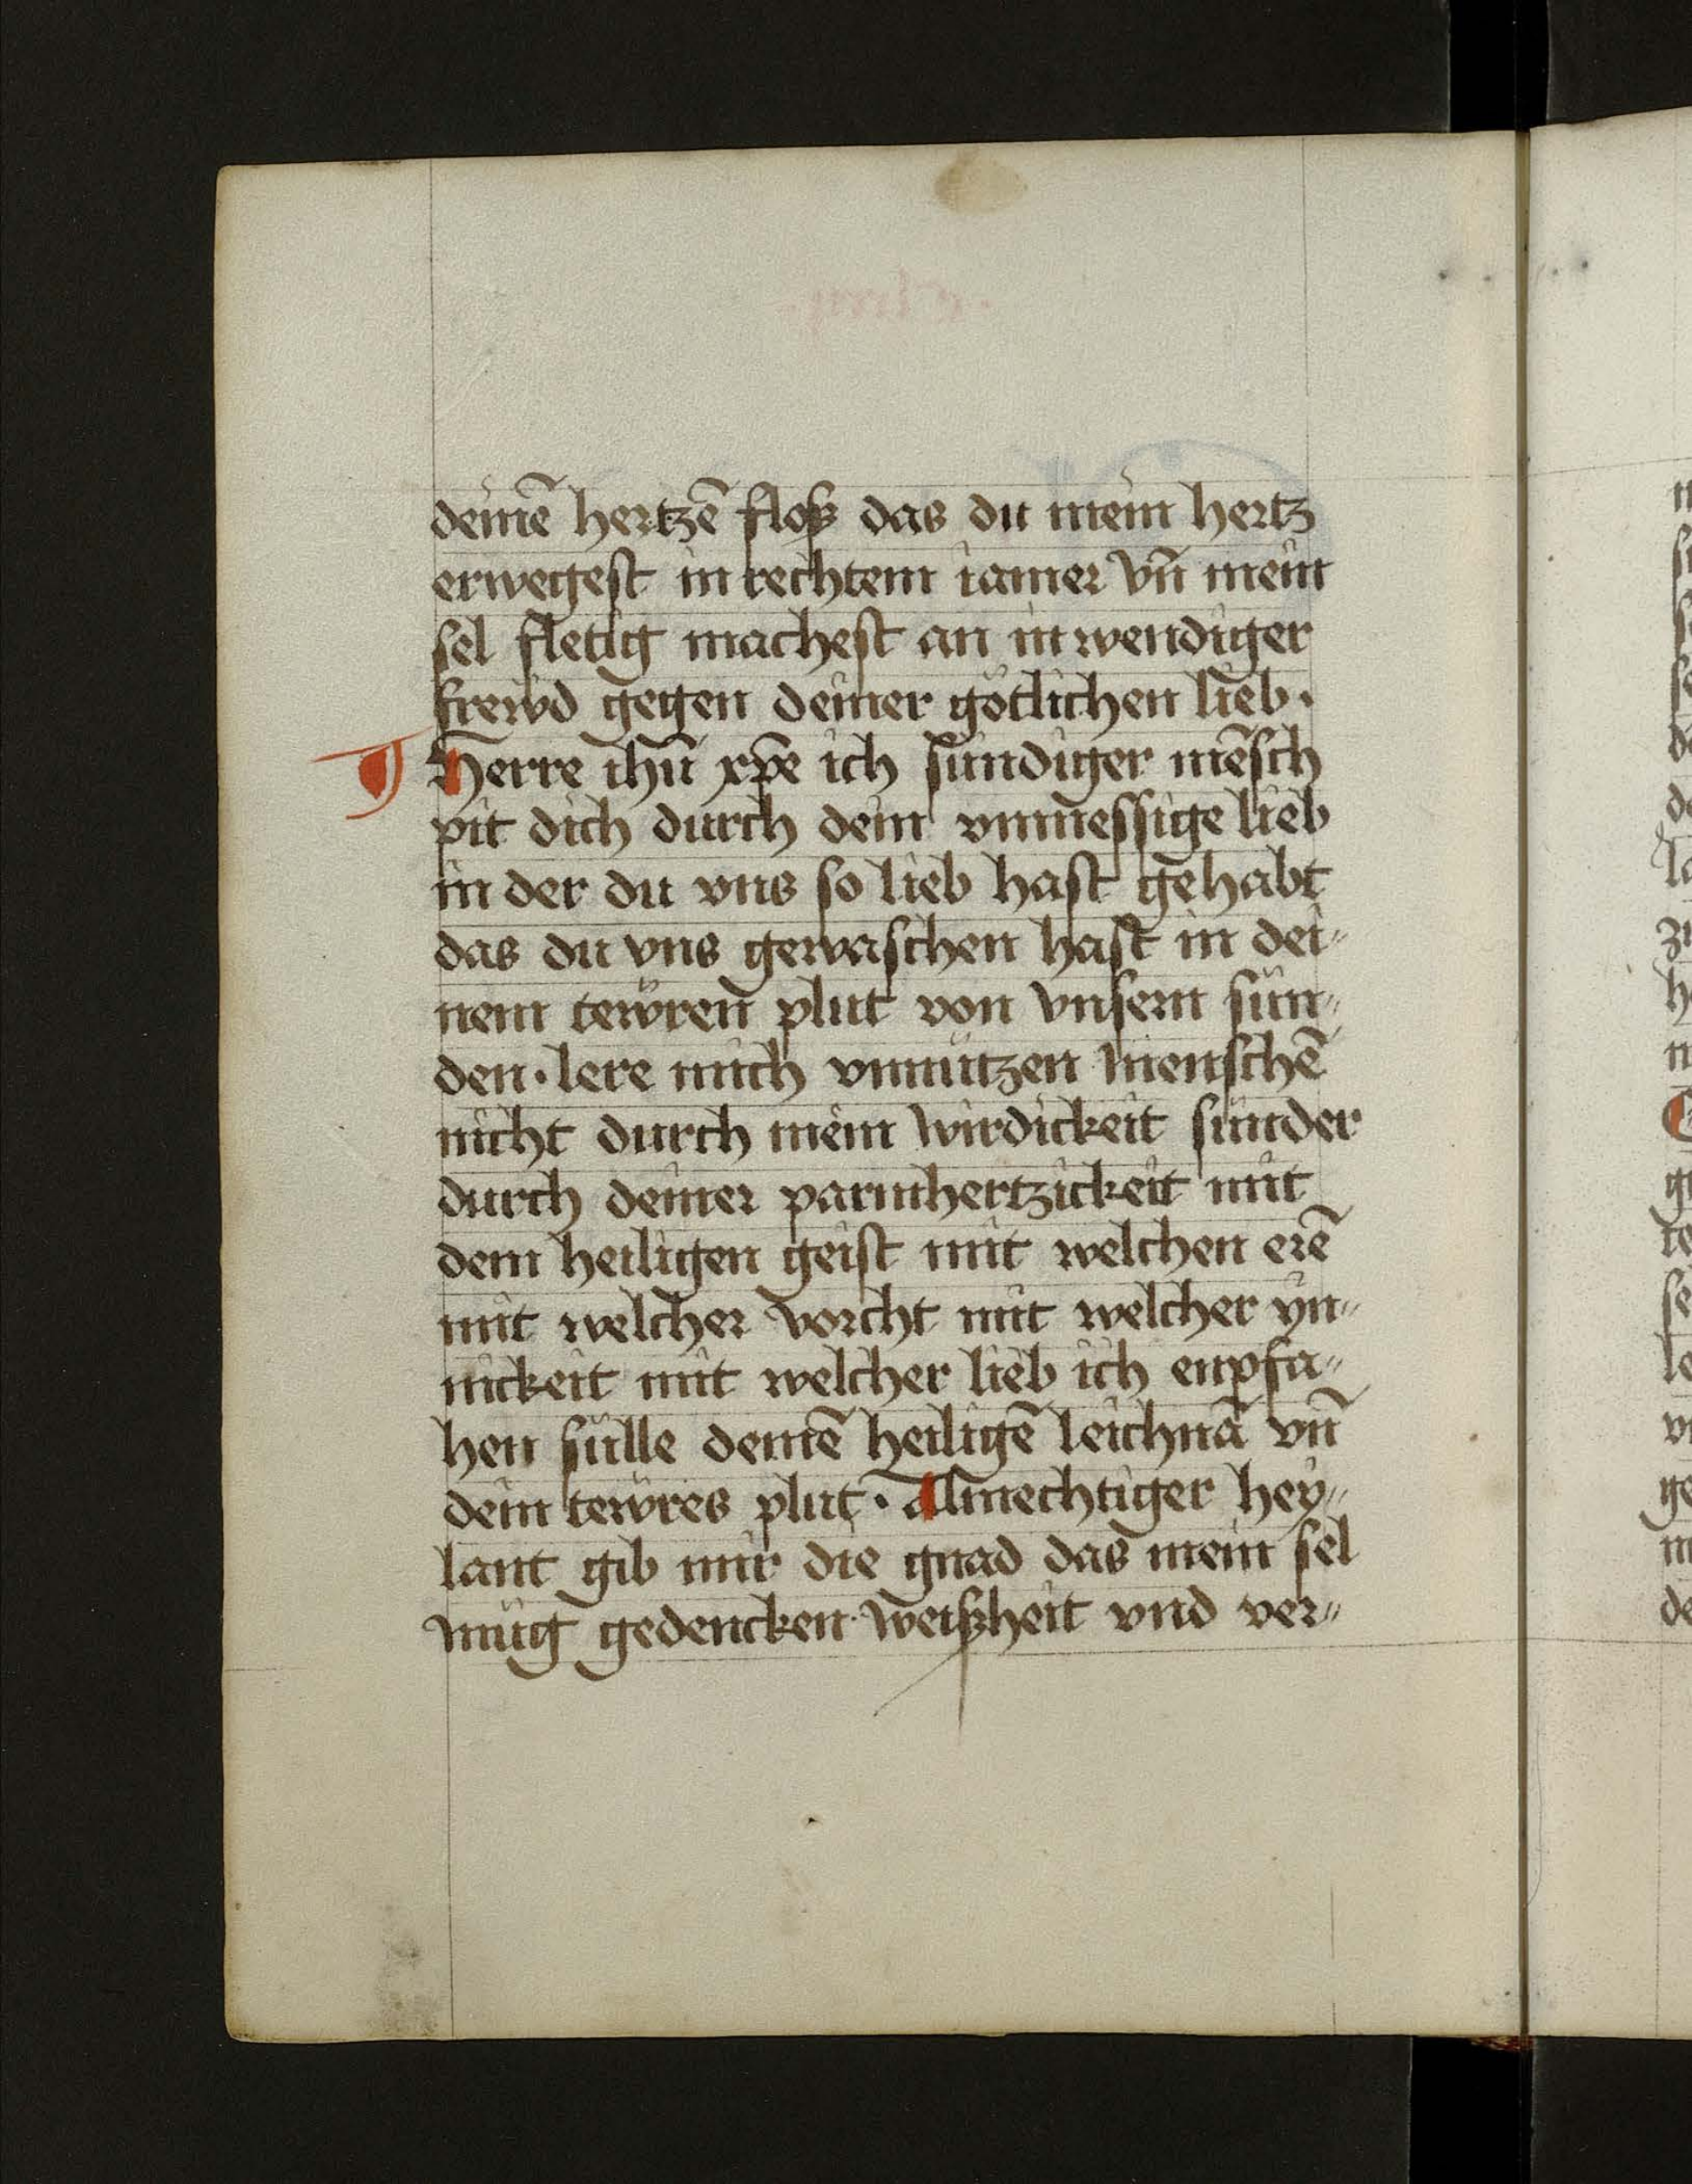 deinē hertzē floß das du mein hertz
erwegest in rechtem iamer vn̄ mein
sel fletig machest an inwendiger
frewd gegen deiner götlichen lieb·
¶ Herre ihū xp̄e ich sündiger mēsch
pit dich durch dein vnmessige lieb
in der du vns so lieb hast gehabt
das du vns gewaschen hast in dei⸗
nem tewren plut von vnsern sün⸗
den· lere mich vnnützen menschē
nicht durch mein wirdickeit sunder
durch deiner parmhertzickeit mit
dem heiligen geist mit welchen erē
mit welcher vorcht mit welcher yn⸗
nickeit mit welcher lieb ich enpfa⸗
hen sülle deinē heiligē leichnā vn̄
dein tewres plut· Almechtiger hey⸗
lant gib mir die gnad das mein sel
müg gedencken· weißheit vnd ver⸗